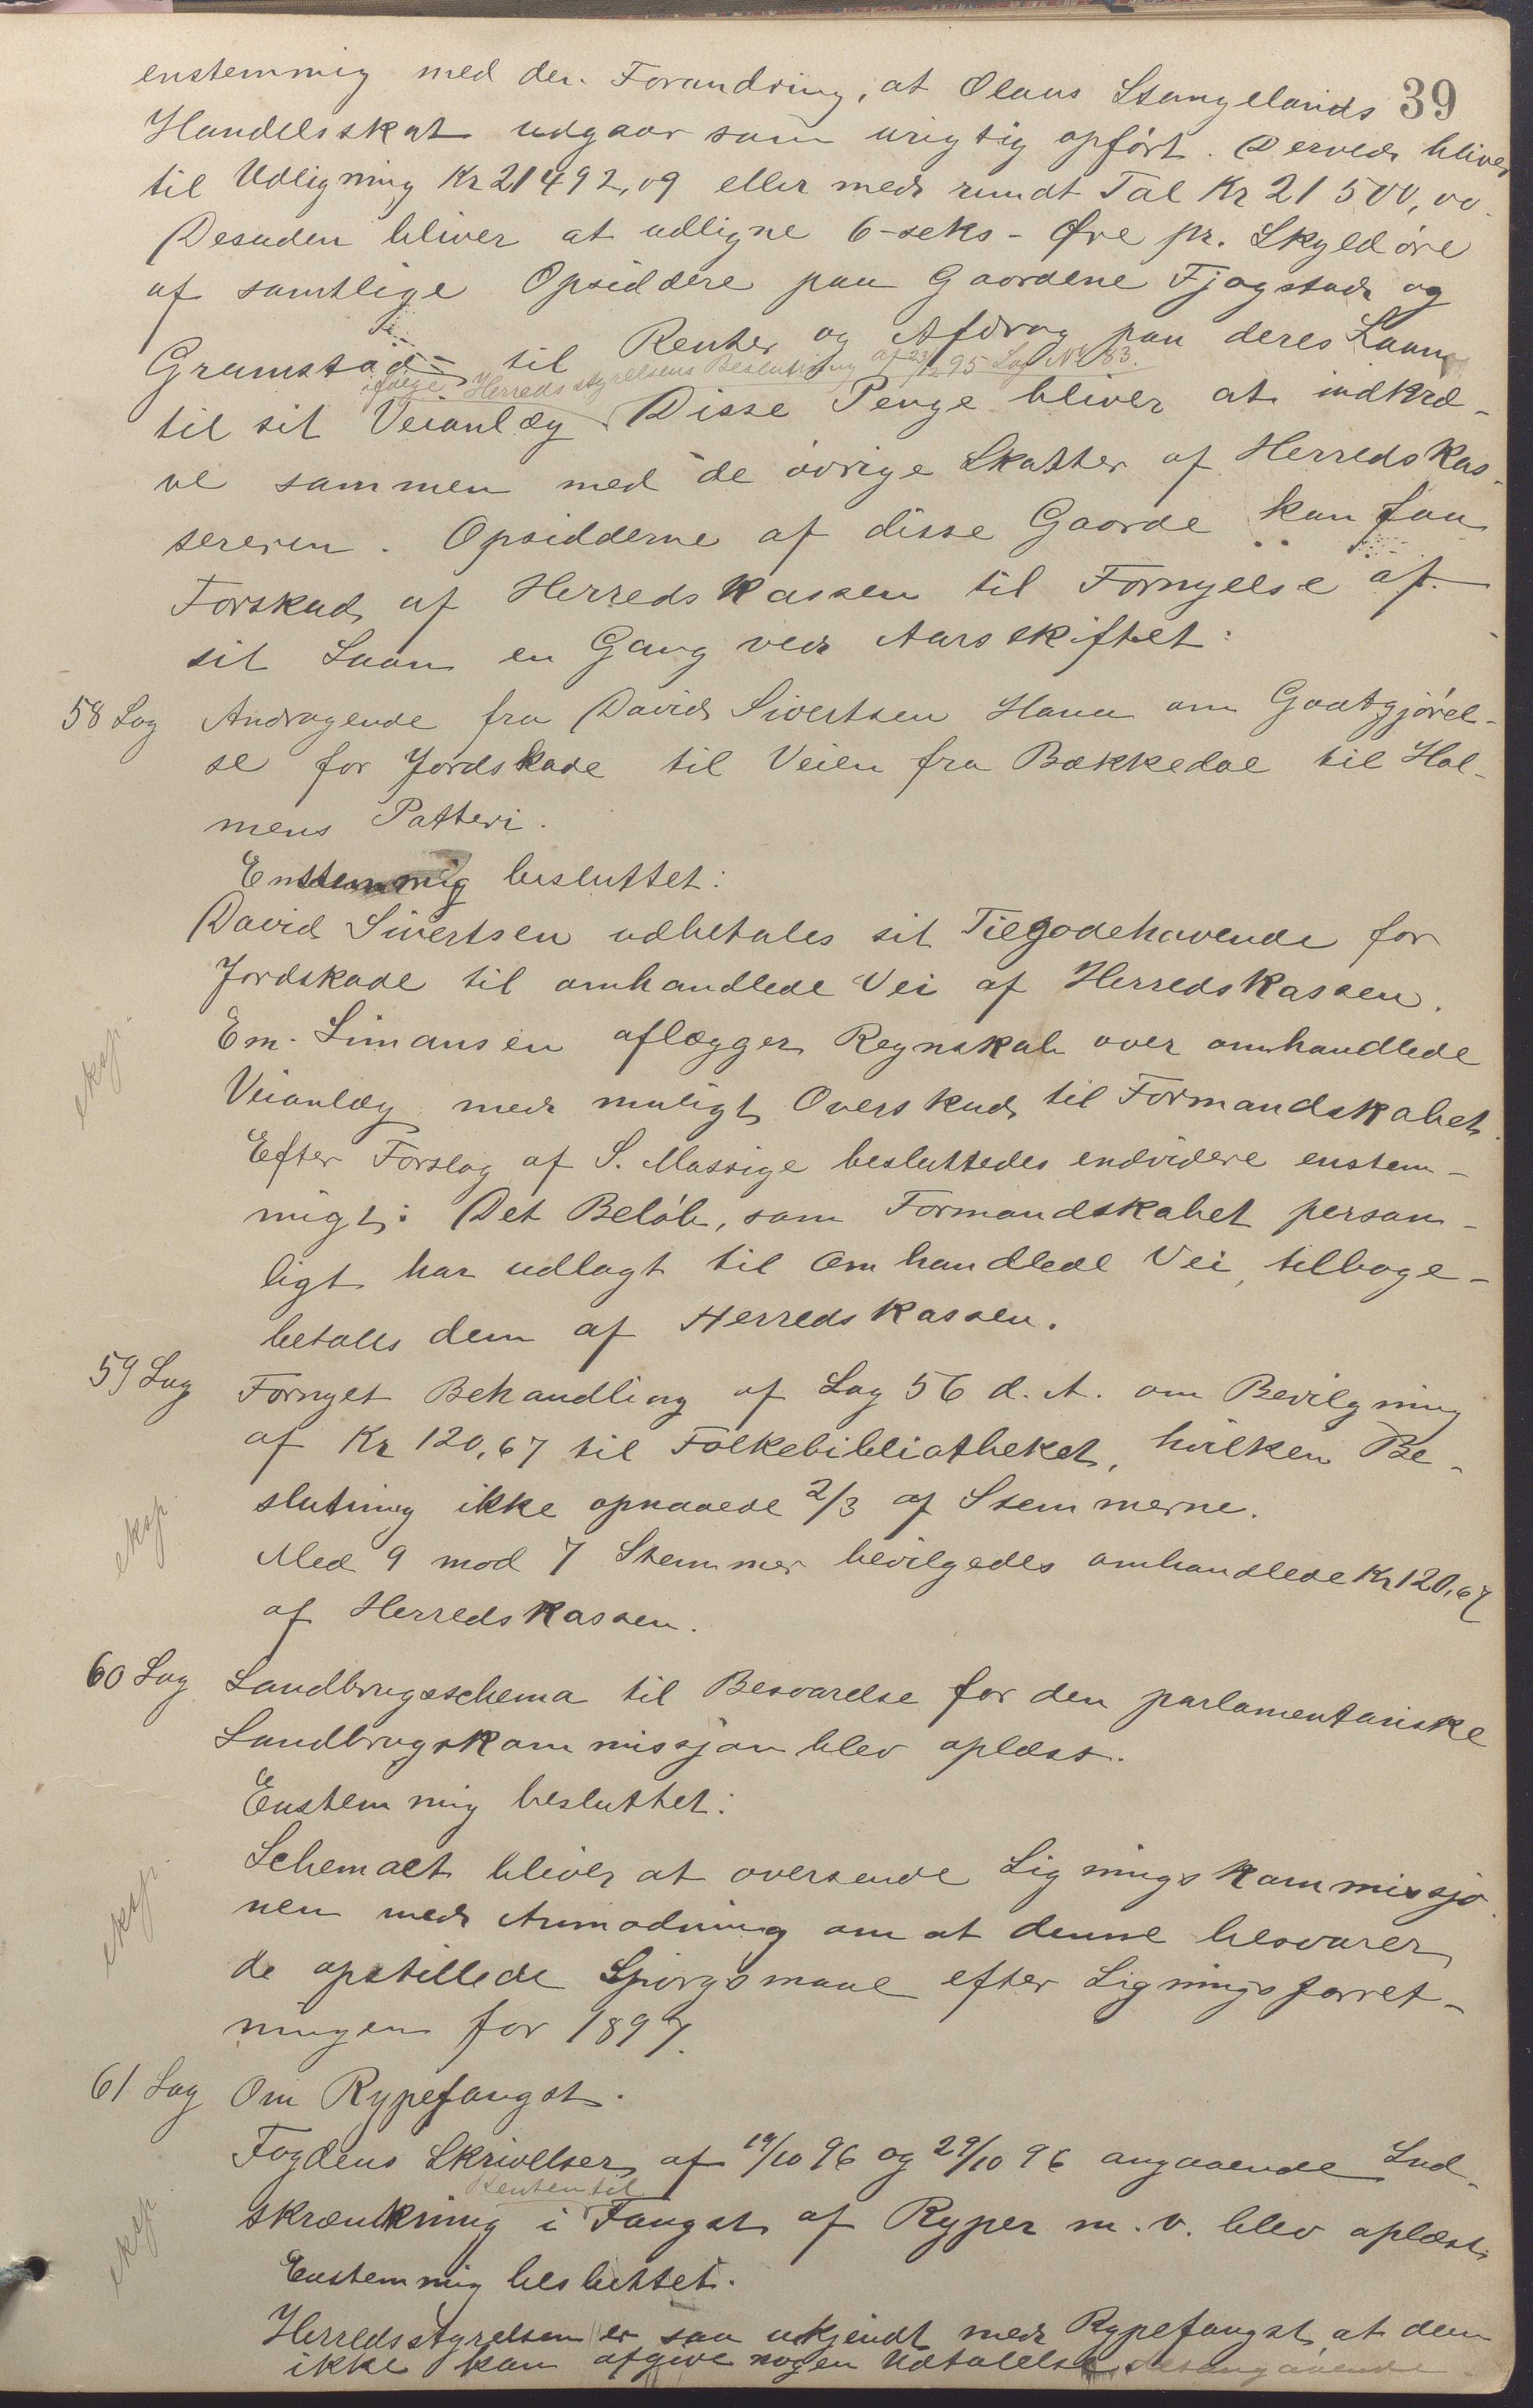 39
enstemmig med den Forandring, at Olaus Stangelands
Handelsskat udgaar som urigtig opført. Derved bliver
til Udligning Kr 21492,09 eller med rundt Tal Kr 21500,00.
Desuden bliver at udligne 6-seks- Øre pr. Skyldøre
af samtlige Opsiddere paa Gaardene Fjogstad og
Gramstad til Renter og Afdrag paa deres Laan
ifølge Herredsstyrelsens Beslutning af 23/12 95 Sag No 83.
til sit Veianlæg. Disse Penge bliver at indkræ-
ve sammen med de øvrige Skatter af Herredskas-
sereren. Opsidderne af disse Gaarde kan faa
Forskud af Herredskassen til Fornyelse af
sit Laan en Gang ved Aarsskiftet.
58 Sag Andragende fra David Sivertsen Hana om Godtgjørel-
se for Jordskade til Veien fra Bækkedal til Hol-
mens Patteri.
Enstemmig besluttet:
David Sivertsen udbetales sit Tilgodehavende for
Jordskade til omhandlede Vei af Herredskassen.
Em. Simonsen aflægger Regnskab over omhandlede
eksp.
Veianlæg med muligt Overskud til Formandskabet.
Efter Forslag af S. Massige besluttedes endvidere enstem-
migt: Det Beløb, som Formandskabet person-
ligt har udlagt til omhandlede Vei, tilbage-
betales dem af Herredskassen.
59 Sag Fornyet Behandling af Sag 56 d. A. om Bevilgning
af Kr 120,67 til Folkebibliotheket, hvilken Be-
slutning ikke opnaaede 2/3 af Stemmerne.
eksp.
Med 9 mod 7 Stemmer bevilgedes omhandlede Kr 120,67
af Herredskassen.
60 Sag Landbrugsschema til Besvarelse for den parlamentariske
Landbrugskommissjon blev oplæst.
Enstemmig besluttet:
Schemaet bliver at oversende Ligningskommissjo-
eksp.
nen med Anmodning om at denne besvarer
de opstillede Spørgsmaal efter Ligningsforret-
ningen for 1897.
61 Sag Om Rypefangst.
Fogdens Skrivelser af 19/10 96 og 29/10 96 angaaende Ind-
Retten til
skrænkning i Fangst af Ryper m. v. blev oplæst.
eksp.
Enstemmig besluttet.
Herredsstyrelsen er saa ukjendt med Rypefangst, at den
ikke kan afgive nogen Udtalelse desangaaende.